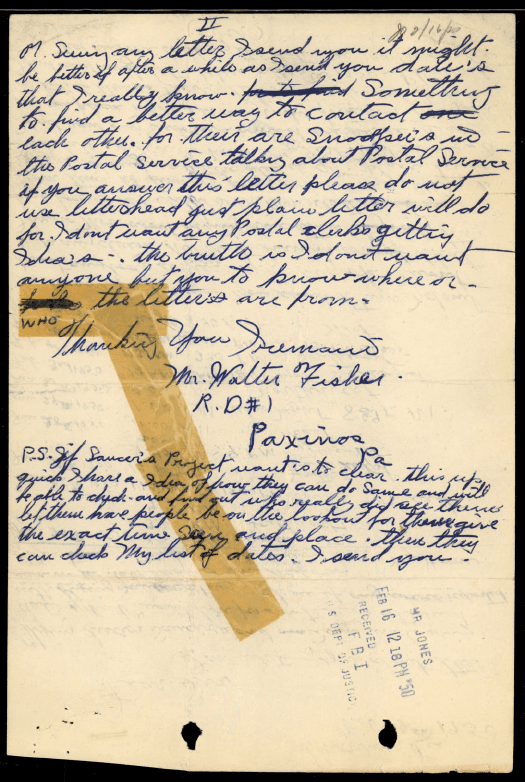 II
2/16/50
of. Seeing any letter I send you it might.
be better if after a while as I send you date's
that I really know. Something
to find a better way to contact
each other. for their are Snooper's in
the Postal Service talking about Postal Service
if you answer this letter please do not
use letterhead just plain letter will do
for I dont want any Postal clerks getting
Idea's -. the truth is I dont want
anyone but you to know where or -
WHO the letters are from.
Thanking You I remain
Mr. Walter Fisher.
R.D #1
Paxinos
Pa
P.S. If Saucer's Project want is to clear. this up.
quick I have a Idea of how they can do same and will
be able to check. and find out who really did see them
let them have people be on the lookout for them give
the exact time and place. then they
can check My list of dates. I send you.
MR JONES
FEB 16 12 18 PM '50
RECEIVED
F B I
U S DEPT OF JUSTICE